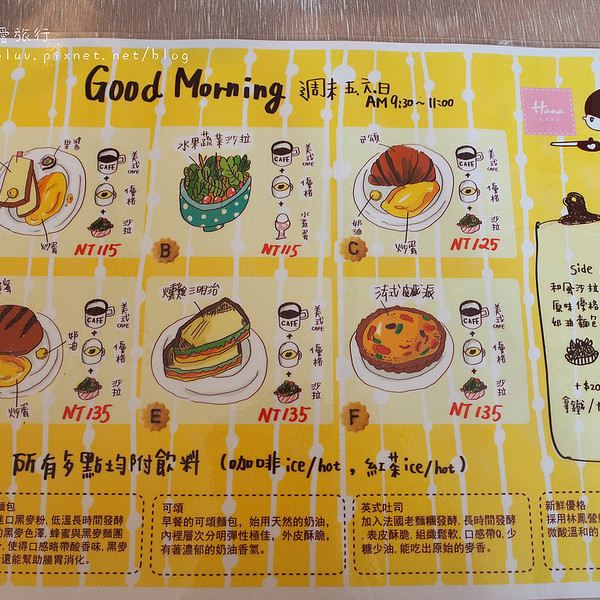 愛旅行
oluv.pixnet.net/blog
Good Morning 週末五.六.日
AM 9:30~11:00
Hana
CAFE
果醬
炒蛋
CAFE
美式
優格
沙拉
NT 115
水果蔬菜沙拉
B
CAFE
美式
優格
水煮蛋
NT 115
可頌
奶油
炒蛋
C
CAFE
美式
優格
沙拉
NT 125
蜜
奶油
炒蛋
CAFE
美式
CAFE
優格
沙拉
NT 135
燻雞三明治
E
CAFE
美式
CAFE
優格
沙拉
NT 135
法式鹹派
F
CAFE
美式
CAFE
優格
沙拉
NT 135
Side
和風沙拉
原味優格
奶油麵包
+$20
拿鐵/
所有多點均附飲料 (咖啡ice/hot,紅茶ice/hot)
麵包
進口黑麥粉, 低溫長時間發酵
的黑麥色澤, 蜂蜜與黑麥麵團
使得口感略帶酸香味, 黑麥
還能幫助腸胃消化。
可頌
早餐的可頌麵包, 始用天然的奶油,
內裡層次分明彈性極佳, 外皮酥脆,
有著濃郁的奶油香氣。
英式吐司
加入法國老麵糰發酵, 長時間發酵
表皮酥脆, 組織鬆軟, 口感帶Q, 少
糖少油, 能吃出原始的麥香。
新鮮優格
採用林鳳營鮮
微酸溫和的